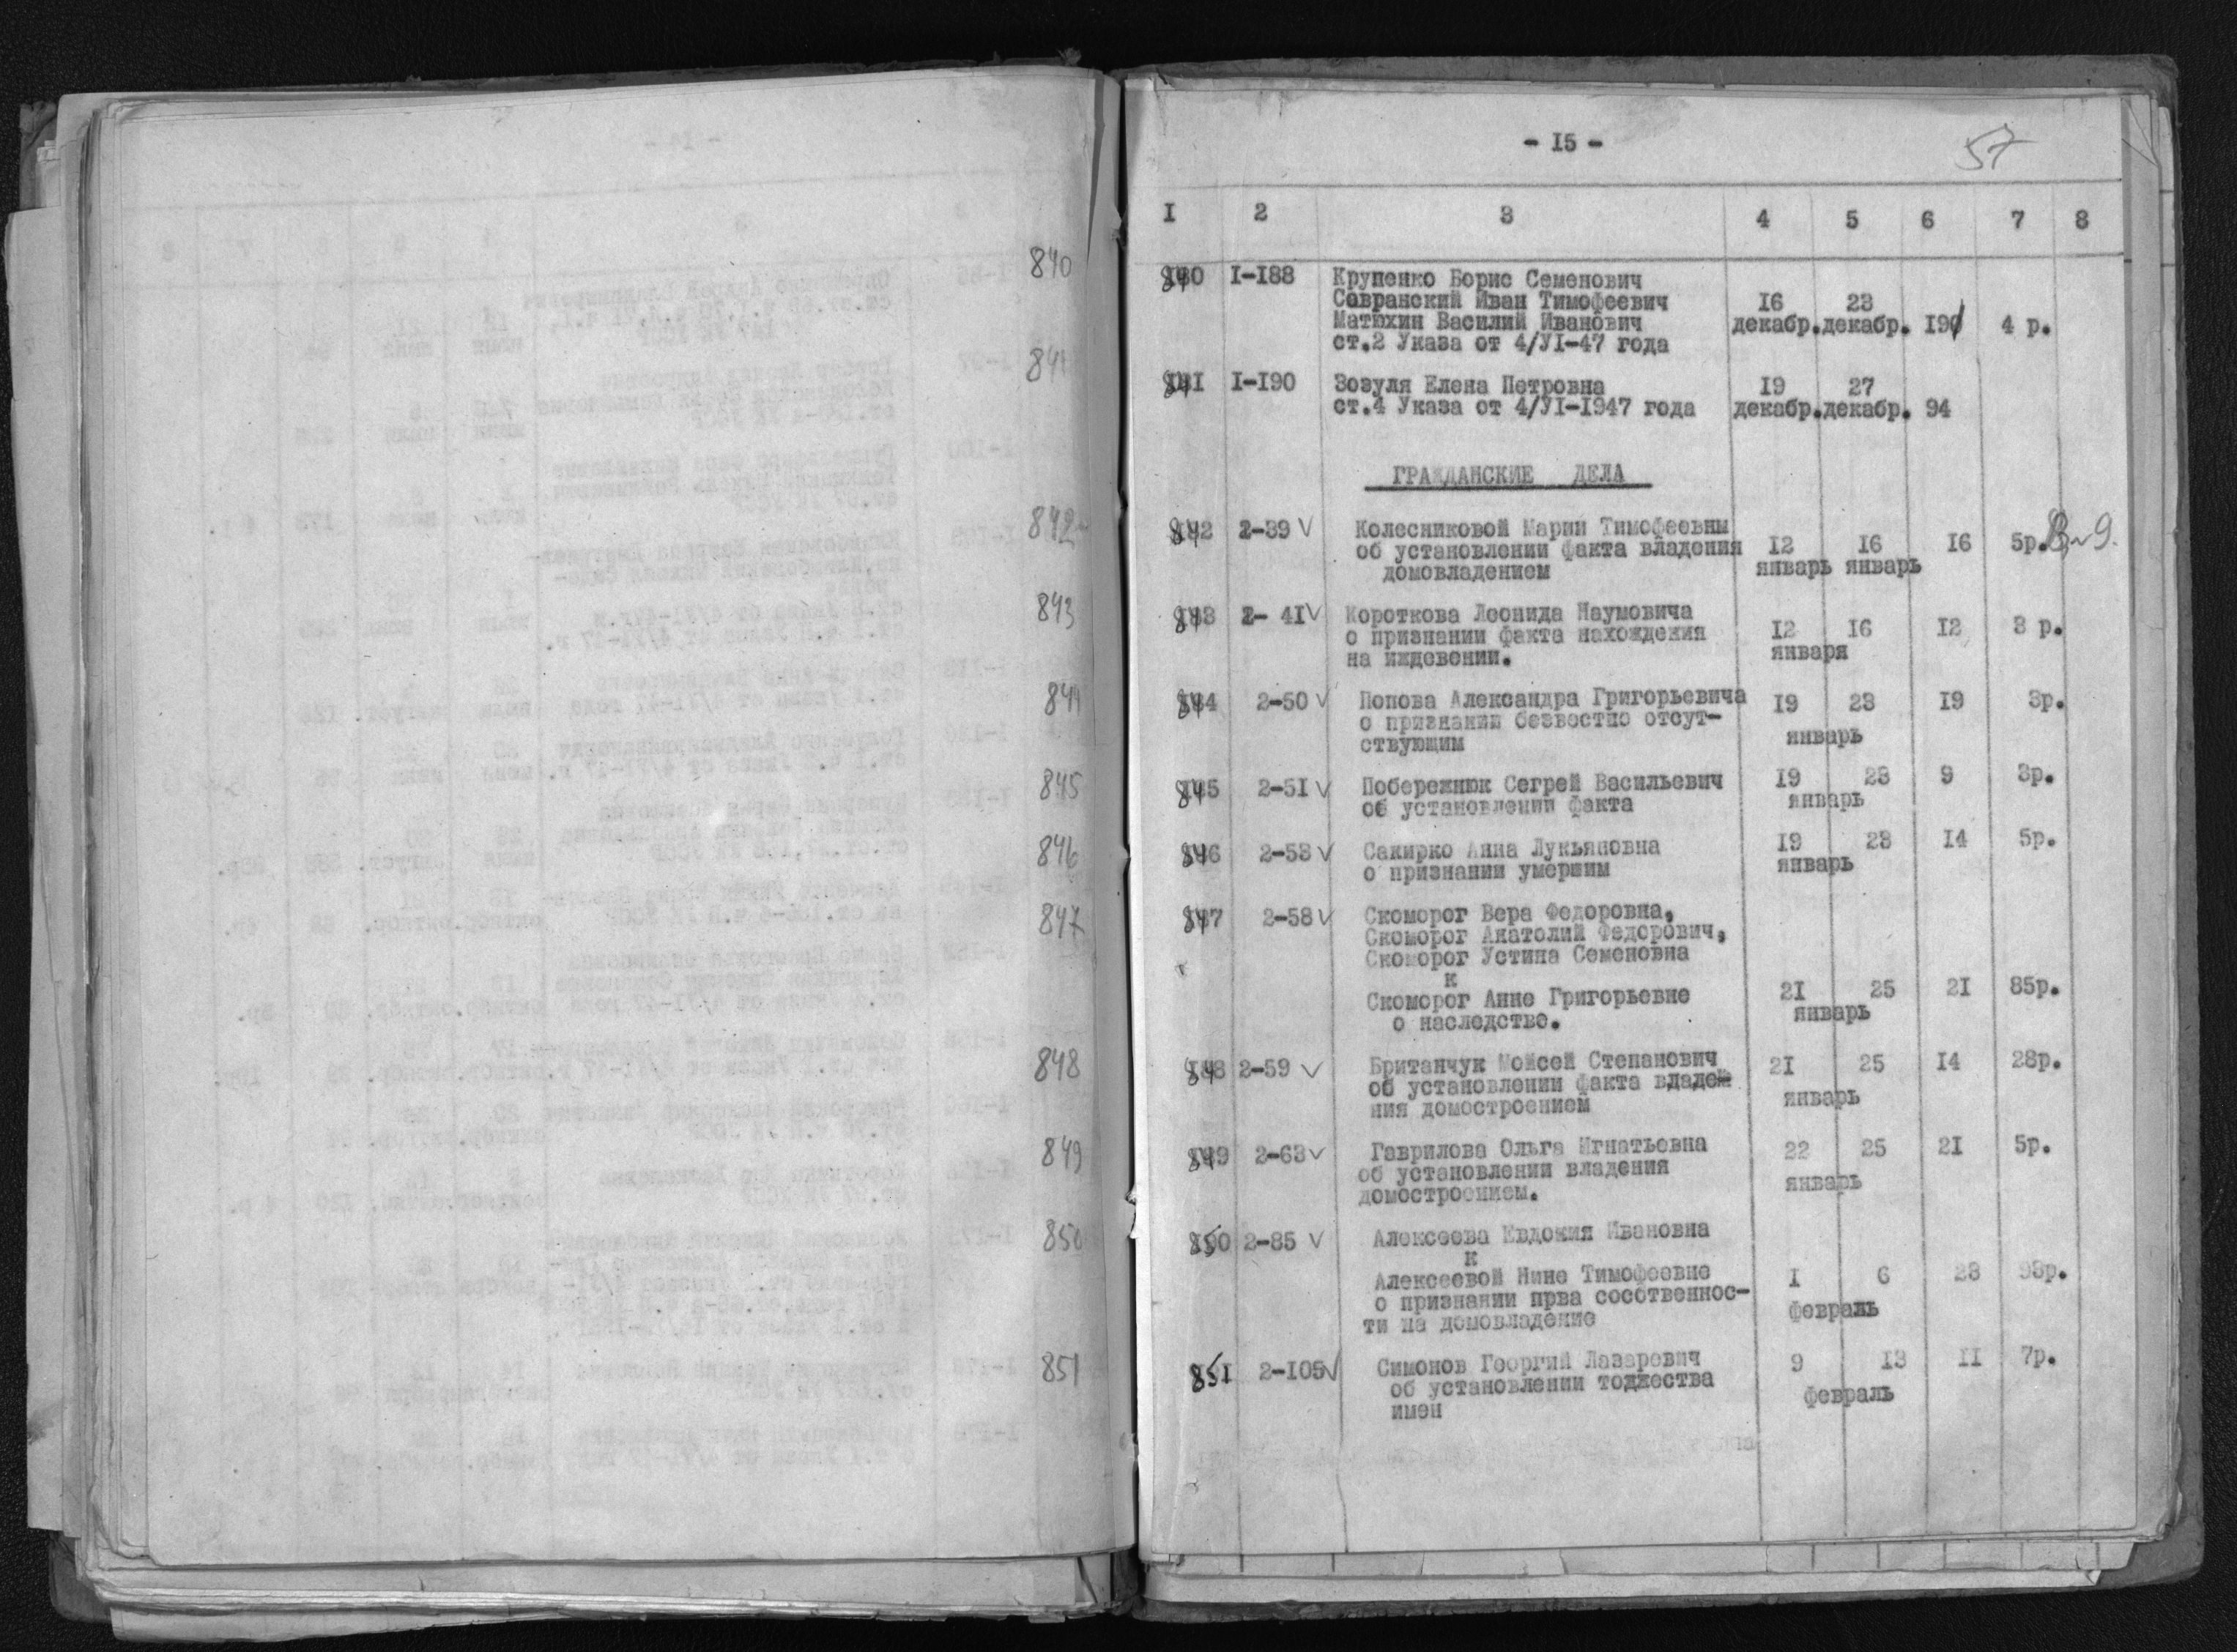 840
841
842
843
844
845
846
847
848
849
850
851
- I5 -
57
I 2 3 4 5 6 7 8
840 I-I88 Крупенко Борис Семенович
Савранский Иван Тимофеевич 16 23
Матюхин Василий Иванович декабр. декабр. 190 4 р.
ст.2 Указа от 4/УI-47 года
841 I-I90 Зозуля Елена Петровна I9 27
ст.4 Указа от 4/УI-I947 года декабр. декабр. 94
ГРАЖДАНСКИЕ ДЕЛА
842 2-39 V Колесниковой Марии Тимофеевны
об установлении факта владения I2 I6 I6 5р.
домовладением январь январь
843 2- 4I V Короткова Леонида Наумовича
о признании факта нахождения I2 I6 I2 3 р.
на иждевении. января
844 2-50 V Попова Александра Григорьевича I9 23 I9 3р.
о признании безвестно отсут-
ствующим январь
845 2-5I V Побережнюк Сегрей Васильевич I9 23 9 3р.
об установлении факта январь
846 2-53 V Сакирко Анна Лукьяновна I9 23 I4 5р.
о признании умершим январь
847 2-58 V Скоморог Вера Федоровна,
Скоморог Анатолий Федорович,
Скоморог Устина Семеновна
к
Скоморог Анне Григорьевне 2I 25 2I 85р.
о наследстве. январь
848 2-59 V Британчук Мойсей Степанович 2I 25 I4 28р.
об установлении факта владе-
ния домостроением январь
849 2-63 V Гаврилова Ольга Игнатьевна 22 25 2I 5р.
об установлении владения
домостроением. январь
850 2-85 V Алексеева Евдокия Ивановна
к
Алексеевой Нине Тимофеевне I 6 28 93р.
о признании прва сособтвеннос-
ти на домовладение февраль
851 2-I05 V Симонов Георгий Лазаревич 9 I3 II 7р.
об установлении тоджества
имен февраль